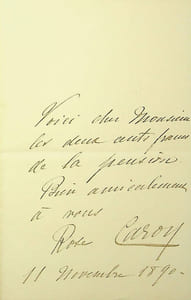 Voici cher Monsieur
les deux cents francs
de la pension
Bien amicalement
à vous
Rose Caron
11 Novembre 1890.